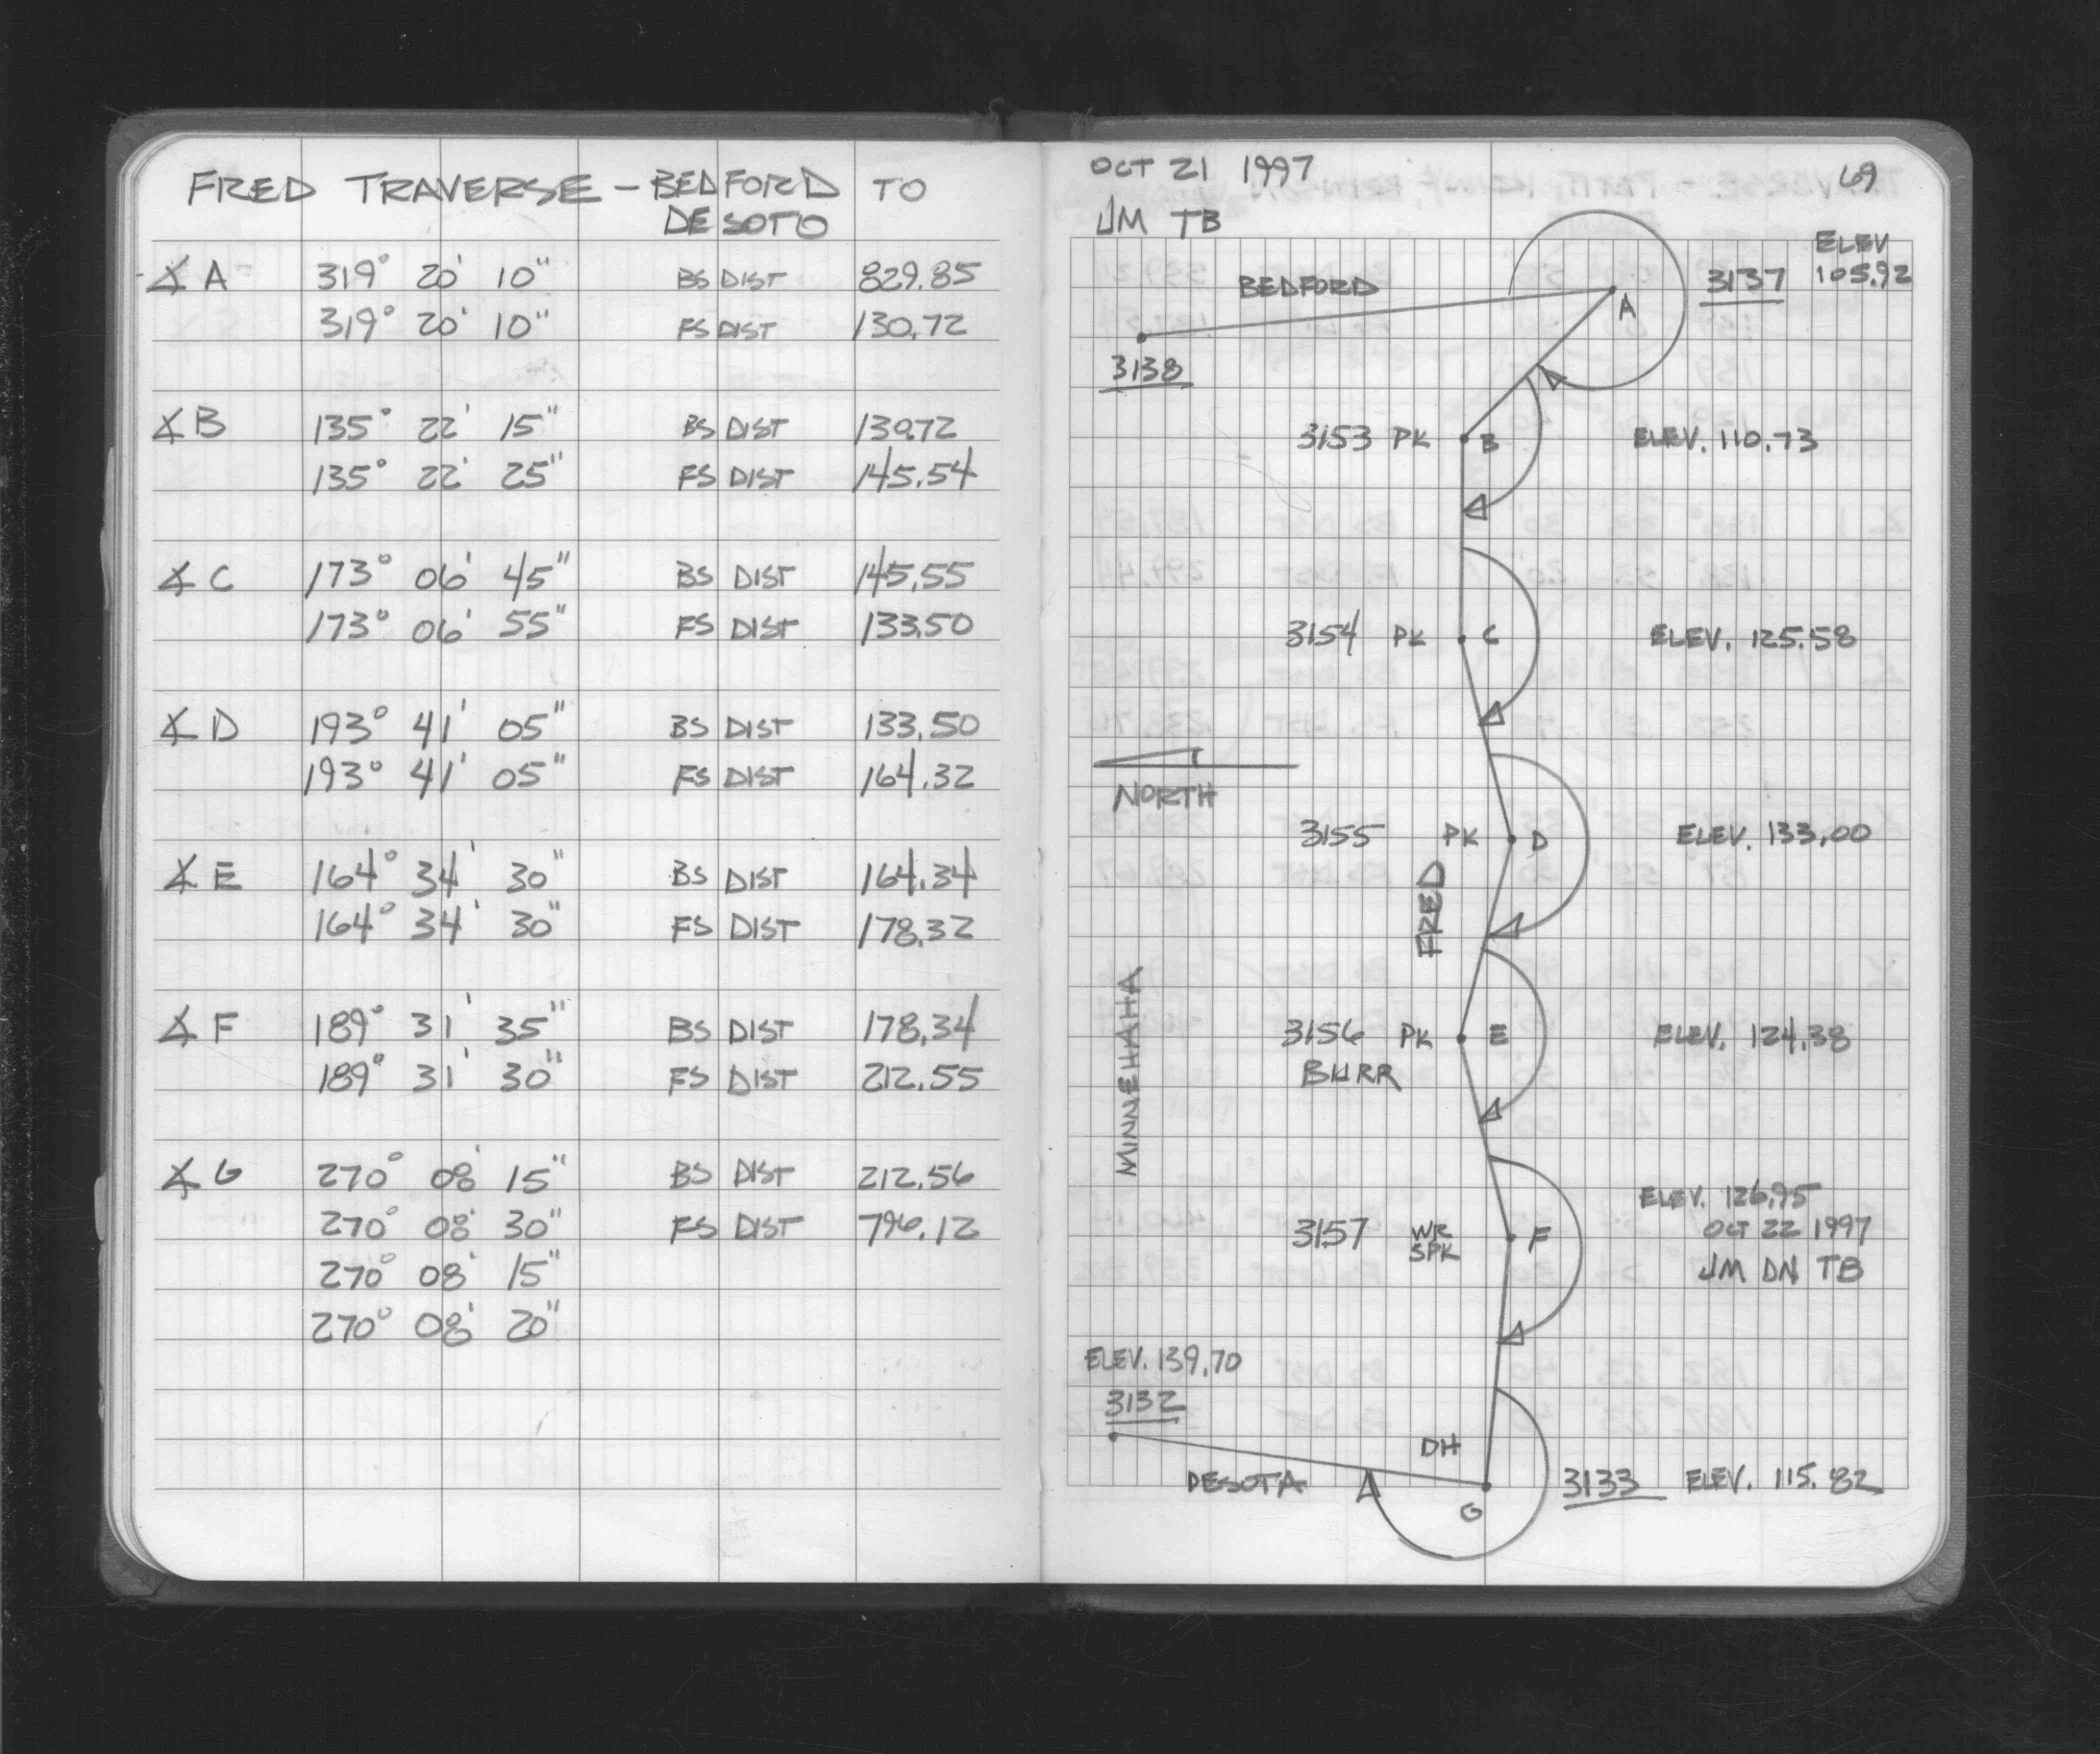 FRED TRAVERSE - BEDFORD TO
DESOTO
∡ A 319° 20' 10" BS DIST 829.85
319° 20' 10" FS DIST 130.72
∡ B 135° 22' 15" BS DIST 130.72
135° 22' 25" FS DIST 145.54
∡ C 173° 06' 45" BS DIST 145.55
173° 06' 55" FS DIST 133.50
∡ D 193° 41' 05" BS DIST 133.50
193° 41' 05" FS DIST 164.32
∡ E 164° 34' 30" BS DIST 164.34
164° 34' 30" FS DIST 178.32
∡ F 189° 31' 35" BS DIST 178.34
189° 31' 30" FS DIST 212.55
∡ G 270° 08' 15" BS DIST 212.56
270° 08' 30" FS DIST 796.12
270° 08' 15"
270° 08' 20"
OCT 21 1997 69
JM TB
ELEV
BEDFORD A 3137 105.92
3138
3153 PK B ELEV. 110.73
3154 PK C ELEV. 125.58
NORTH
3155 PK D ELEV. 133.00
FRED
MINNEHAHA
3156 PK E ELEV. 124.38
BURR
ELEV. 126.95
3157 WR F OCT 22 1997
SPK
JM DN TB
ELEV. 139.70
3132
DH
DESOTA G 3133 ELEV. 115.82